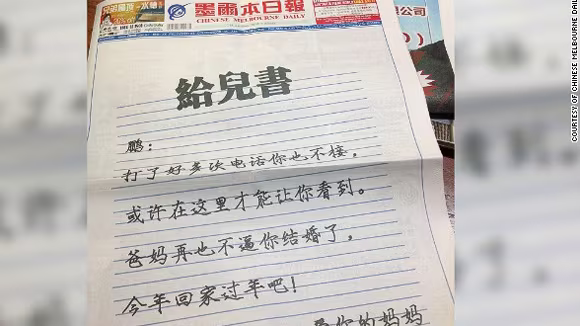 墨爾本日報
CHINESE MELBOURNE DAILY
給兒書
鹏：
打了好多次电话你也不接，
或许在这里才能让你看到。
爸妈再也不逼你结婚了，
今年回家过年吧！
爱你的妈妈
公司
COURTESY OF CHINESE MELBOURNE DAIL